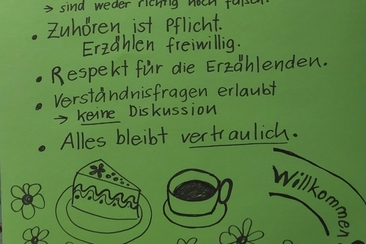 → sind weder richtig noch falsch.
• Zuhören ist Pflicht.
Erzählen freiwillig.
• Respekt für die Erzählenden.
• Verständnisfragen erlaubt
→ keine Diskussion
• Alles bleibt vertraulich.
Willkommen